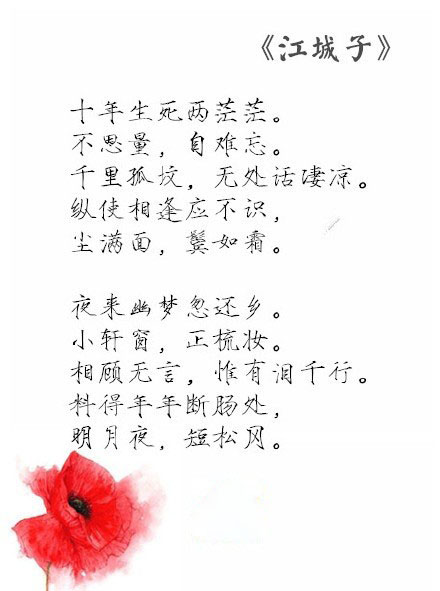 《江城子》
十年生死两茫茫。
不思量，自难忘。
千里孤坟，无处话凄凉。
纵使相逢应不识，
尘满面，鬓如霜。
夜来幽梦忽还乡。
小轩窗，正梳妆。
相顾无言，惟有泪千行。
料得年年断肠处，
明月夜，短松冈。